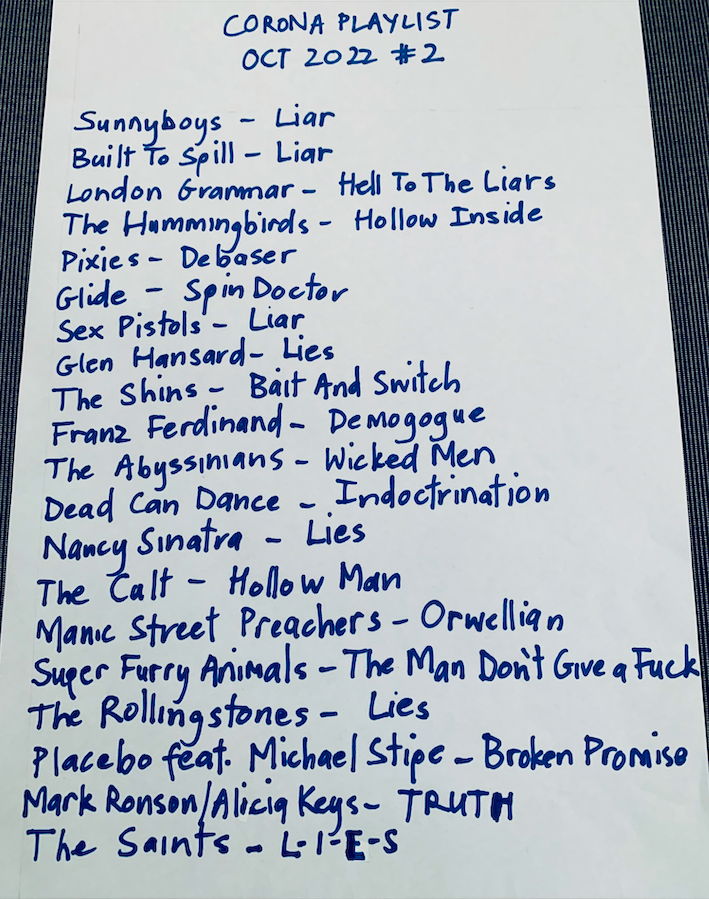 CORONA PLAYLIST
OCT 2022 #2
Sunnyboys - Liar
Built To Spill - Liar
London Grammar - Hell To The Liars
The Hummingbirds - Hollow Inside
Pixies - Debaser
Glide - Spin Doctor
Sex Pistols - Liar
Glen Hansard - Lies
The Shins - Bait And Switch
Franz Ferdinand - Demogogue
The Abyssinians - Wicked Men
Dead Can Dance - Indoctrination
Nancy Sinatra - Lies
The Calt - Hollow Man
Manic Street Preachers - Orwellian
Super Furry Animals - The Man Don't Give a Fuck
The Rollingstones - Lies
Placebo feat. Michael Stipe - Broken Promise
Mark Ronson/Alicia Keys - TRUTH
The Saints - L-I-E-S